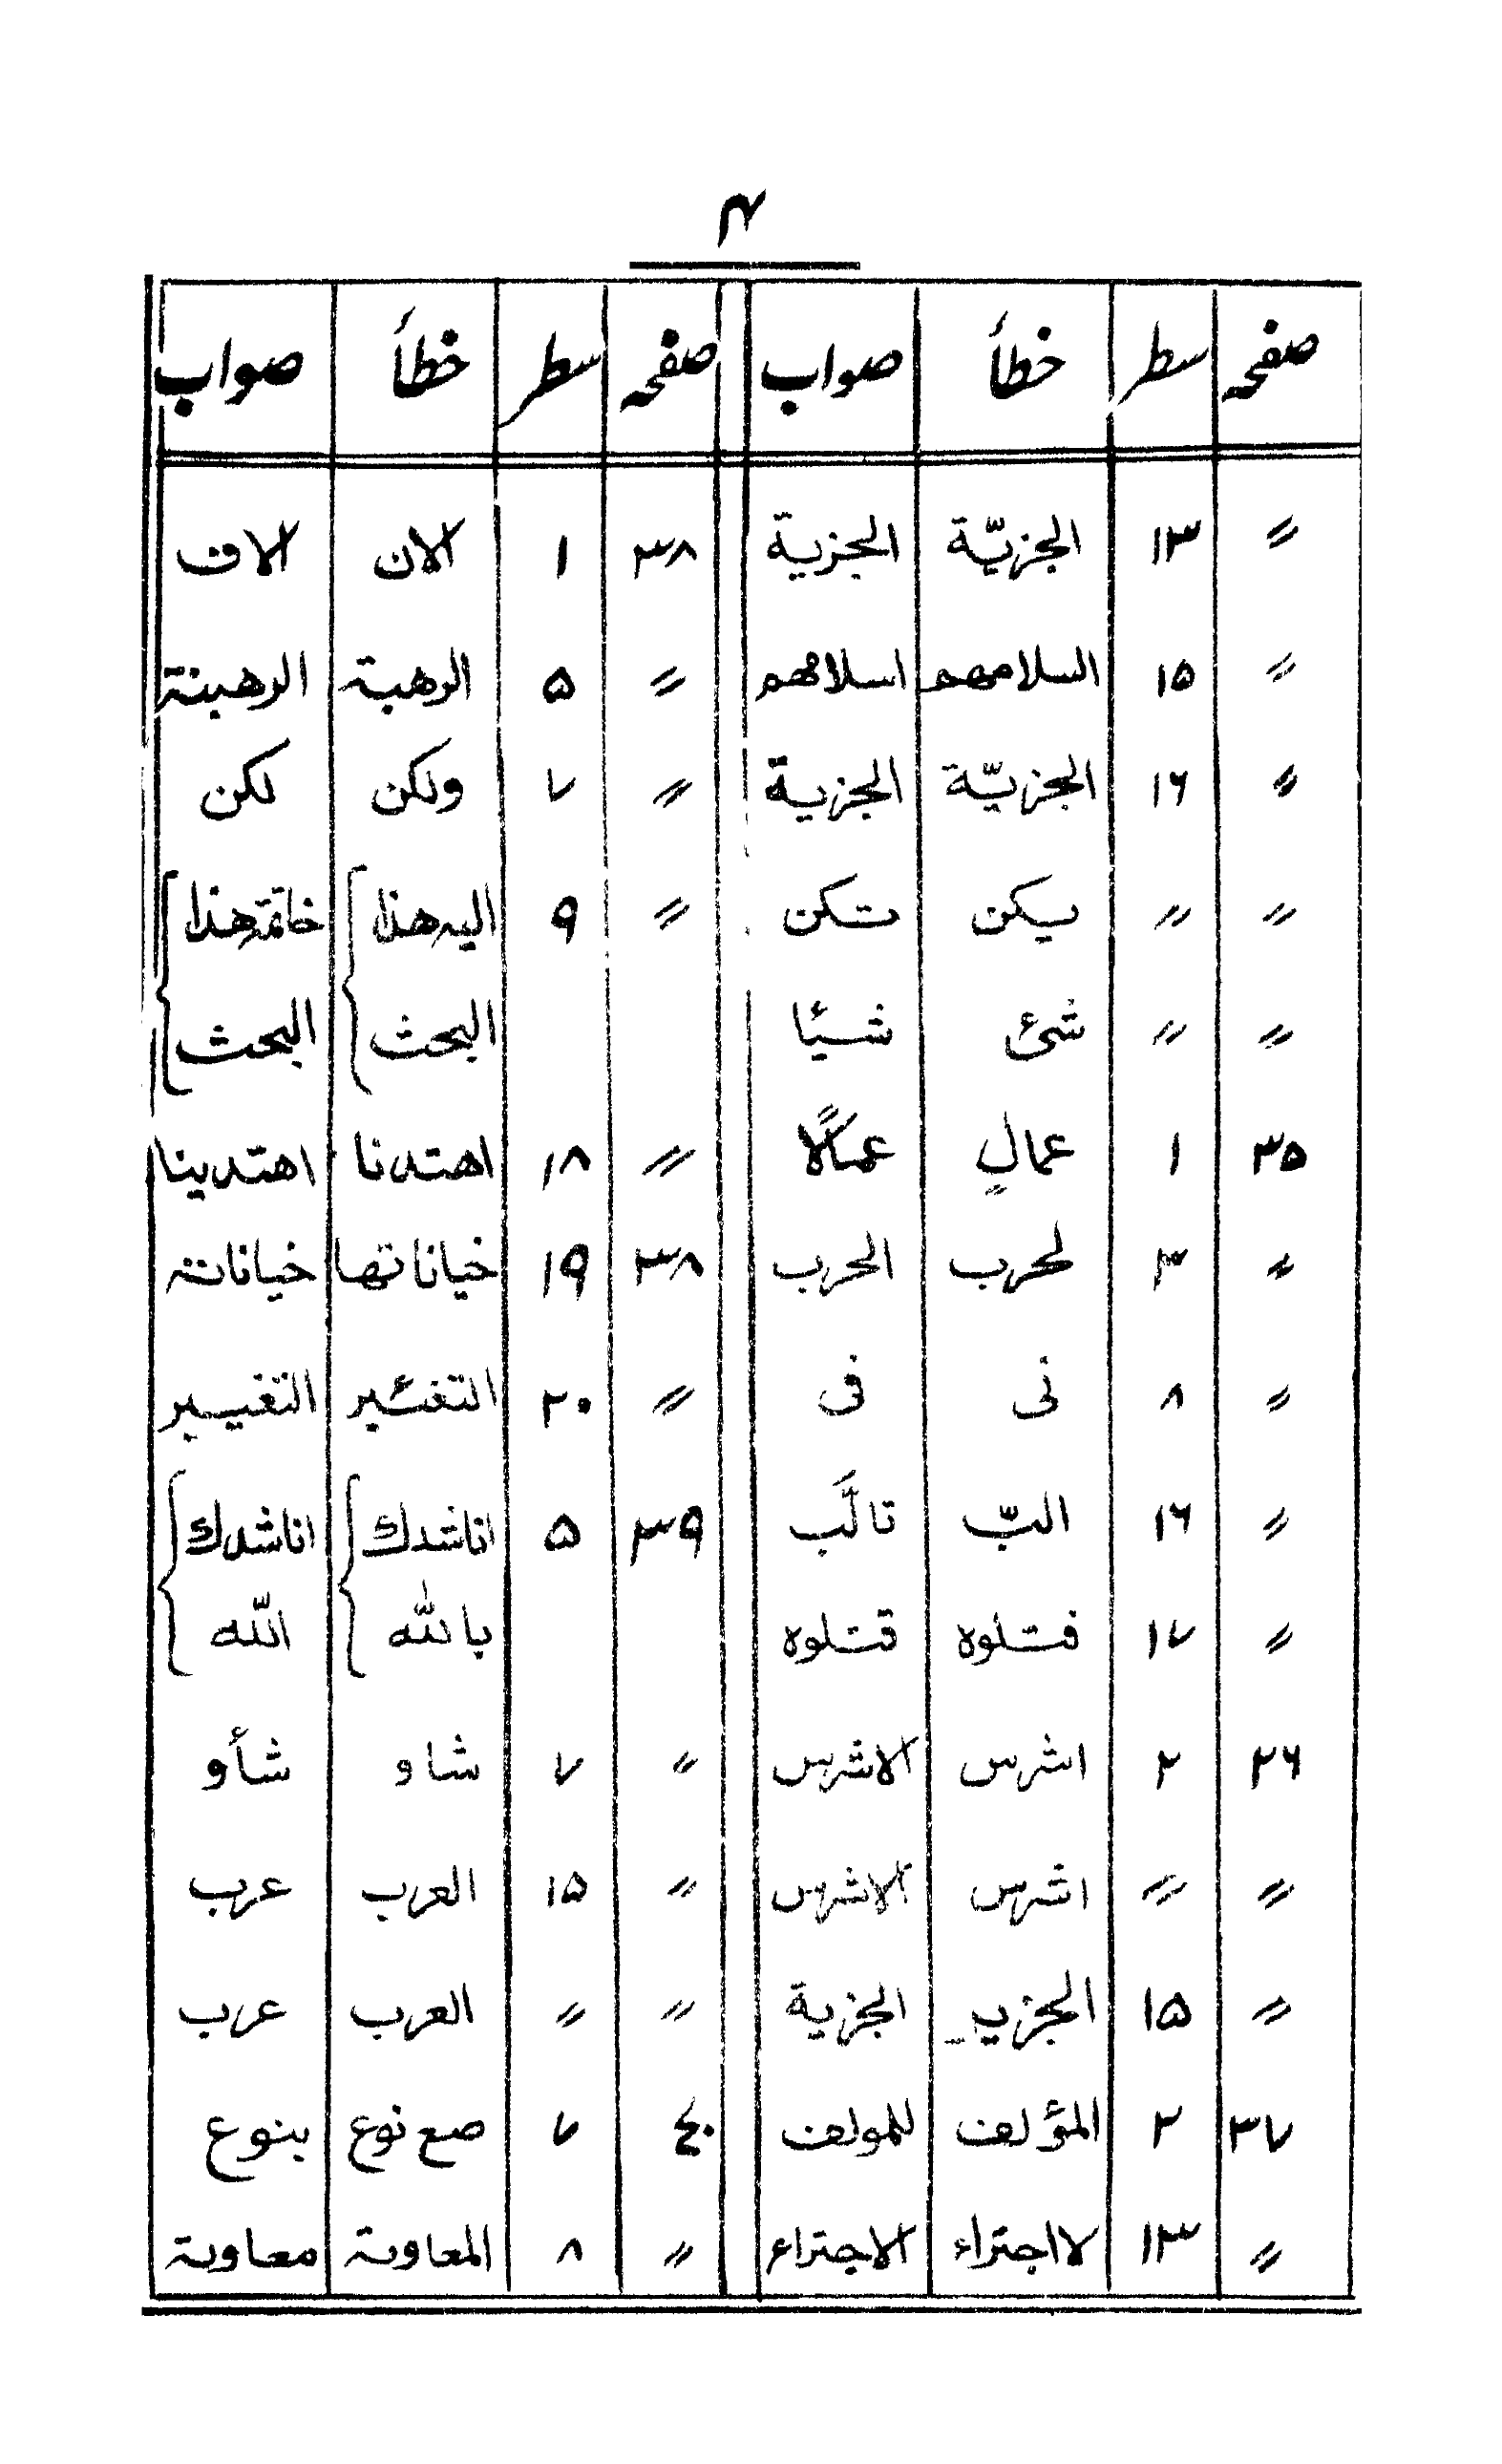 ۴
صفحہ سطر خطأ صواب صفحہ سطر خطأ صواب
〃 ۱۳ الجزيّة الجزية ۳۸ ۱ الان الاف
〃 ۱۵ السلامهم اسلامهم 〃 ۵ الرهبة الرهينة
〃 ۱۶ الجزيّة الجزية 〃 ۷ ولكن لكن
〃 〃 يكن تكن 〃 ۹ اليه هذا خاتمة هذا
〃 〃 شئ شيئا البحث البحث
۳۵ ۱ عمالٍ عمالًا 〃 ۱۸ اهتدنا اهتدينا
〃 ۳ لحرب الحرب ۳۸ ۱۹ خياناتها خياناته
〃 ۸ نى فى 〃 ۲۰ التغئير التغيير
〃 ۱۶ البّ تالَّب ۳۹ ۵ اناشدك اناشدك
〃 ۱۷ فتلوه قتلوه بالله اللّه
۲۶ ۲ اشرس الاشرس 〃 ۷ شاو شأو
〃 〃 اشرس الاشرس 〃 ۱۵ العرب عرب
〃 ۱۵ الجزي الجزية 〃 〃 العرب عرب
۳۷ ۲ المؤلف للمولف ۴۰ ۷ صع نوع بنوع
〃 ۱۳ لااجتراء الاجتراء 〃 ۸ المعاوية معاوية